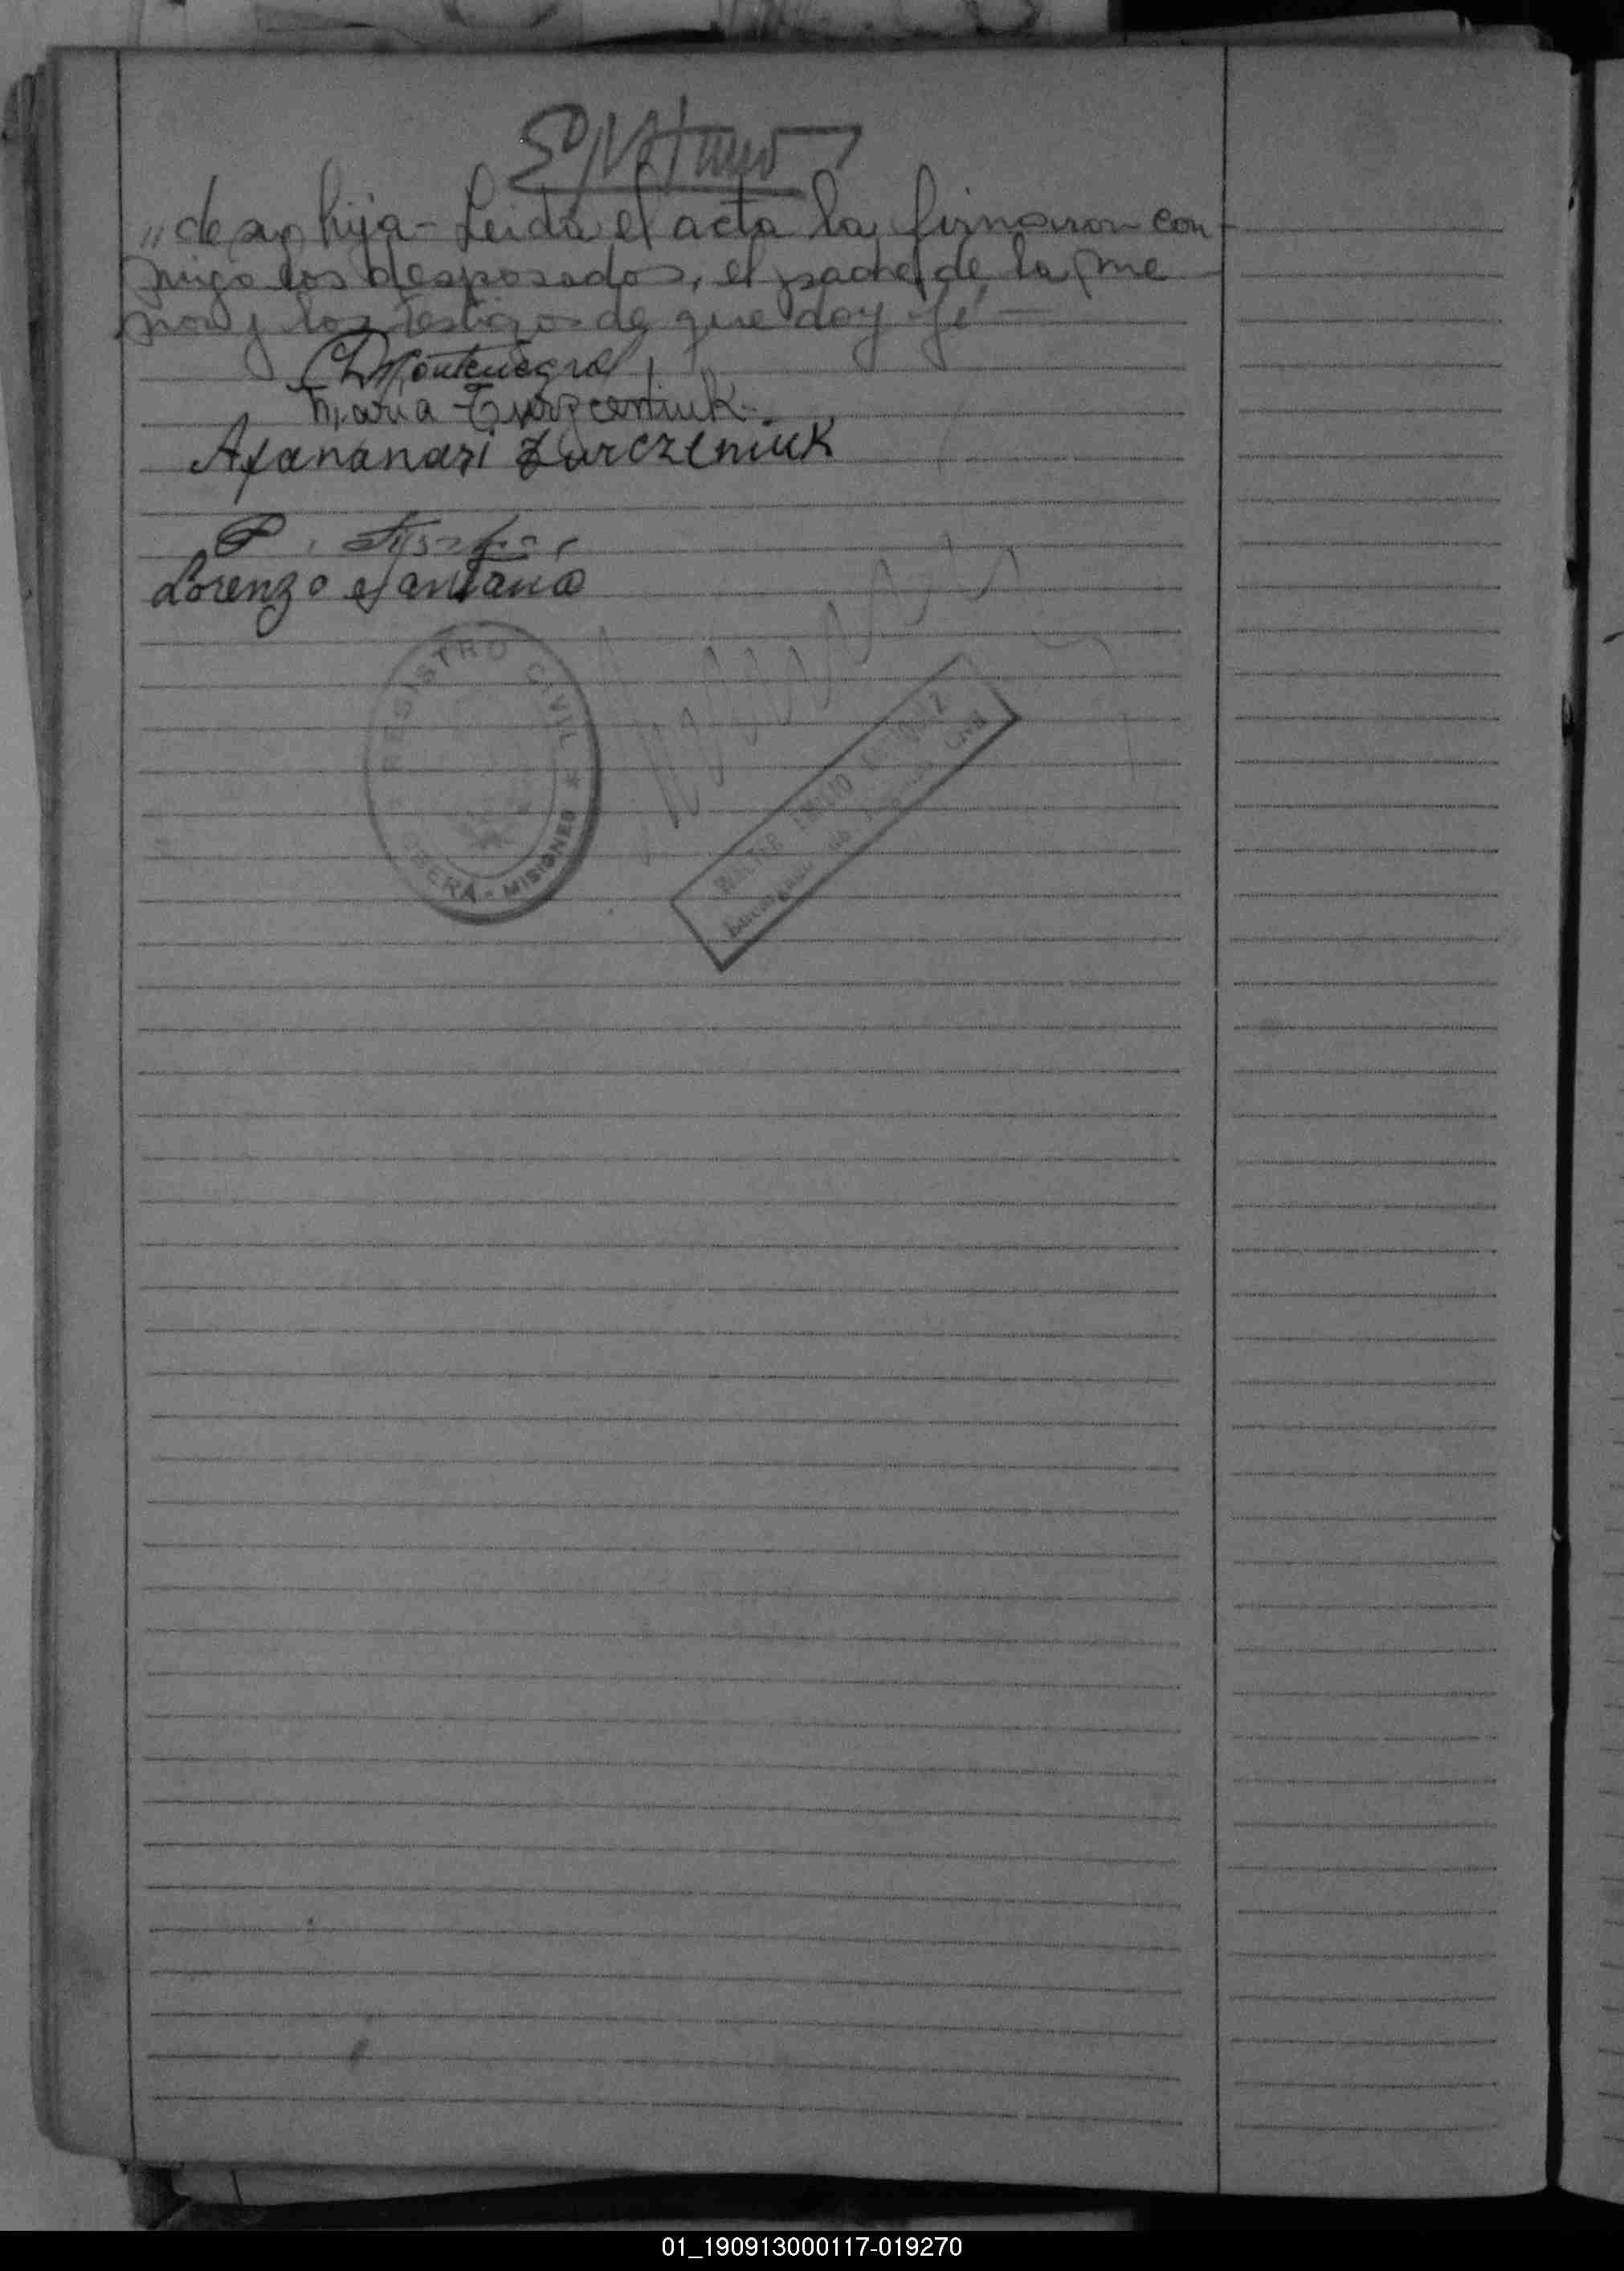 „ de su hija - Leida el acta la firmaron con
migo los desposados, el padre de la me
nor y los testigos de que doy fé —
Montenegro
Maria Turczeniuk
Afananazi Turczeniuk
Lorenzo Santana
REGISTRO CIVIL
OBERA - MISIONES
Encargado del Civil
01_190913000117-019270